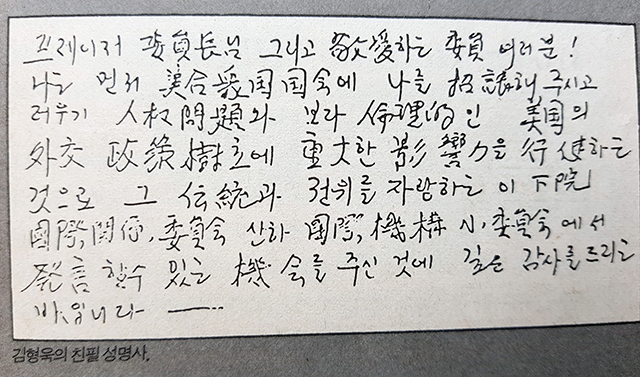 프레이저 委員長님 그리고 敬愛하는 委員 여러분!
나는 먼저 美合衆国国会에 나를 招請해 주시고
더우기 人权問題와 보다 倫理的인 美国의
外交政策樹立에 重大한 影響力을 行使하는
것으로 그 伝統과 권위를 자랑하는 이 下院
国際関係,委員会 산하 国際,機構 小,委員会에서
発言할수 있는 機会를 주신 것에 깊은 감사를 드리는
바입니다 ——
김형욱의 친필 성명사.